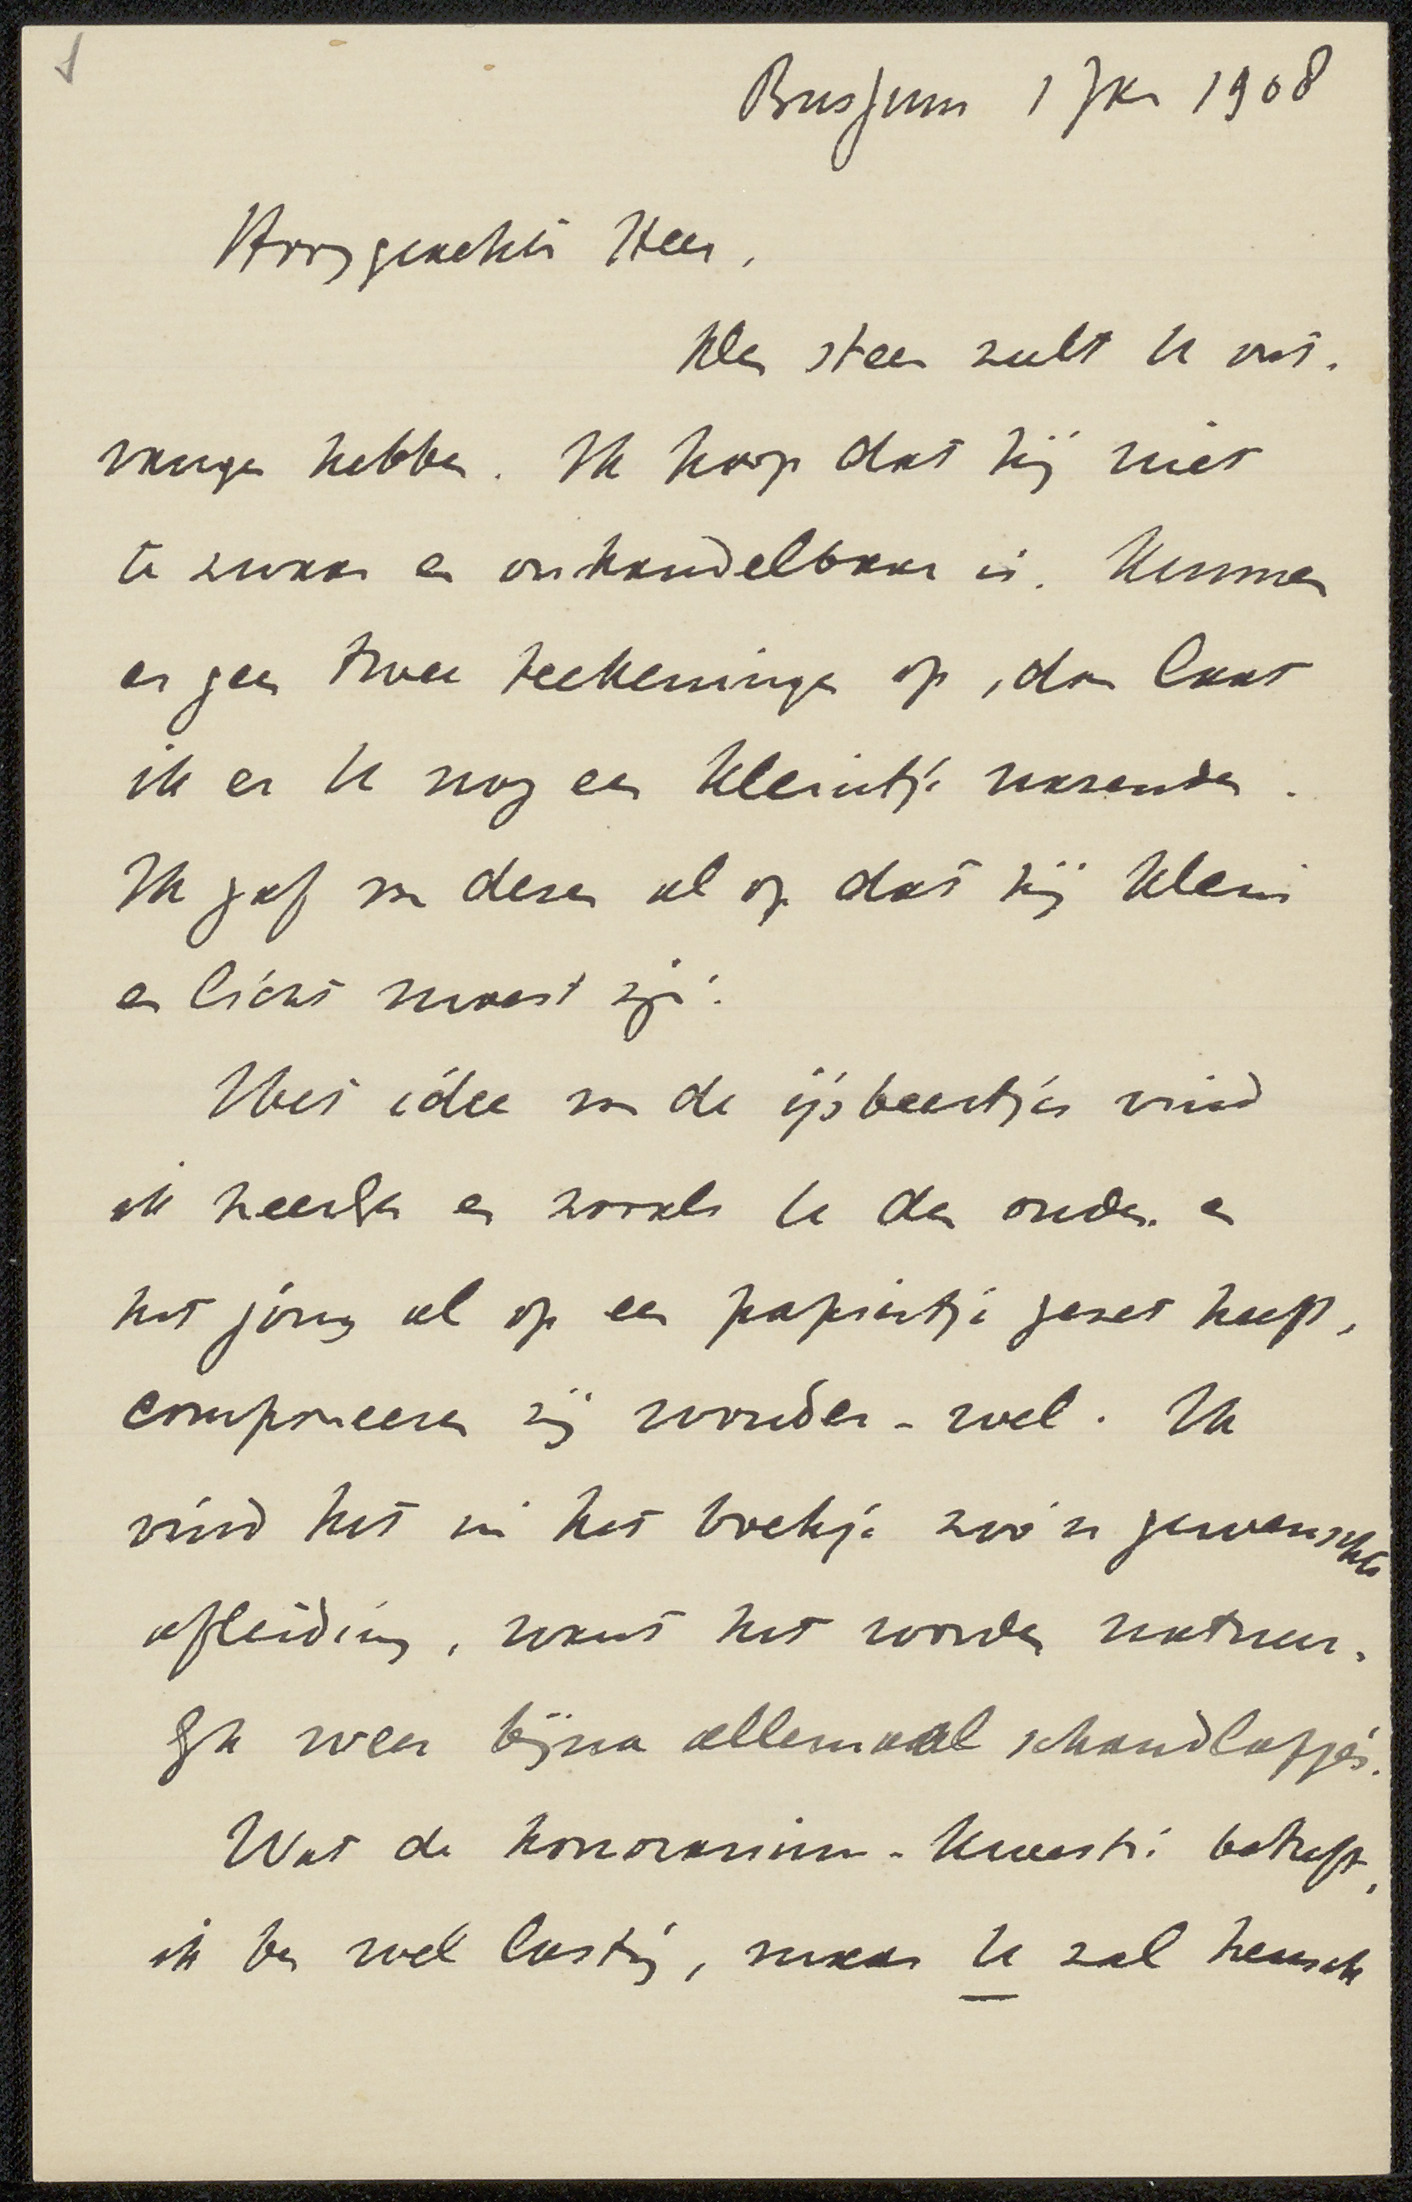 Bussum 1 Jan 1908
Hooggeachte Heer,
Den steen zult U ont-
vangen hebben. Ik hoop dat hij niet
te zwaar en onhandelbaar is. Kunnen
er geen twee teekeningen op, dan laat
ik er U nog een kleintje nazenden.
Ik gaf van dezen al op dat hij klein
en licht moest zijn.
Het idee van de ijsbeertjes vind
ik heerlijk en zooals U den ouden en
het jong al op een papiertje gezet heeft,
componeeren zij wonder-wel. Ik
vind het in het boekje zoo'n gewenschte
afleiding, want het worden natuur-
lijk weer bijna allemaal schandlapjes.
Wat de honorarium-kwestie betreft,
ik ben wel lastig, maar U zal heusch